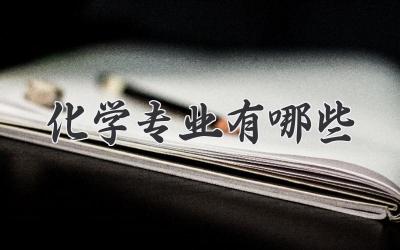 化学专业有哪些